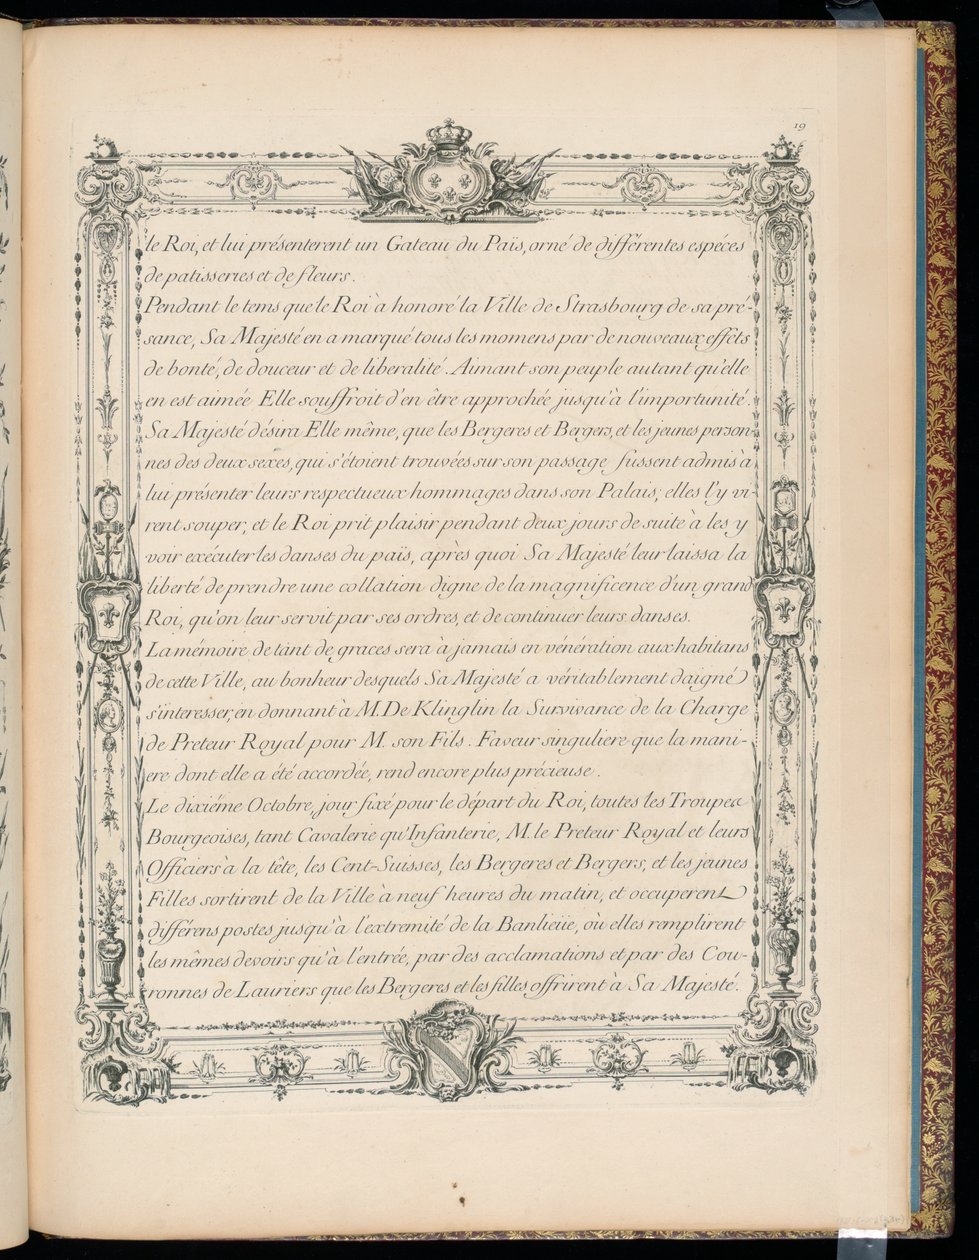 19
le Roi, et lui présenterent un Gateau du Païs, orné de différentes espéces
de patisseries et de fleurs.
Pendant le tems que le Roi à honoré la Ville de Strasbourg de sa pré-
sance, Sa Majesté en a marqué tous les momens par de nouveaux effets
de bonté, de douceur et de liberalité. Aimant son peuple autant qu'elle
en est aimée Elle souffroit d'en être approchée jusqu'à l'importunité.
Sa Majesté désira Elle même, que les Bergeres et Bergers, et les jeunes person-
nes des deux sexes, qui s'étoient trouvées sur son passage fussent admis à
lui présenter leurs respectueux hommages dans son Palais; elles l'y vi-
rent souper, et le Roi prit plaisir pendant deux jours de suite à les y
voir exécuter les danses du païs, après quoi Sa Majesté leur laissa la
liberté de prendre une collation digne de la magnificence d'un grand
Roi, qu'on leur servit par ses ordres, et de continuer leurs danses.
La mémoire de tant de graces sera à jamais en vénération aux habitans
de cette Ville, au bonheur desquels Sa Majesté a véritablement daigné
s'interesser, en donnant à M. De Klinglin la Survivance de la Charge
de Preteur Royal pour M. son Fils. Faveur singuliere que la mani-
ere dont elle a été accordée, rend encore plus précieuse.
Le dixiéme Octobre, jour fixé pour le départ du Roi, toutes les Troupes
Bourgeoises, tant Cavalerie qu'Infanterie, M. le Preteur Royal et leurs
Officiers à la tête, les Cent-Suisses, les Bergeres et Bergers, et les jeunes
Filles sortirent de la Ville à neuf heures du matin, et occuperent
différens postes jusqu'à l'extremité de la Banlieüe, où elles remplirent
les mêmes devoirs qu'à l'entrée, par des acclamations et par des Cou-
ronnes de Lauriers que les Bergeres et les filles offrirent à Sa Majesté.